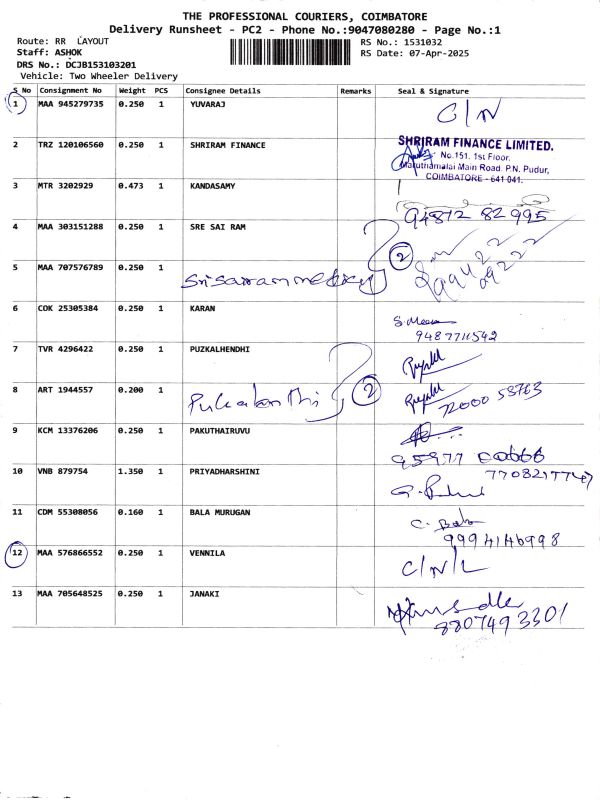 THE PROFESSIONAL COURIERS, COIMBATORE
Delivery Runsheet - PC2 - Phone No.:9047080280 - Page No.:1
Route: RR LAYOUT
Staff: ASHOK
DRS No.: DCJB153103201
Vehicle: Two Wheeler Delivery
RS No.: 1531032
RS Date: 07-Apr-2025
S No Consignment No Weight PCS Consignee Details Remarks Seal & Signature
1 MAA 945279735 0.250 1 YUVARAJ C/N
2 TRZ 120106560 0.250 1 SHRIRAM FINANCE
SHRIRAM FINANCE LIMITED.
No.151, 1st Floor,
Maruthamalai Main Road. P.N. Pudur,
COIMBATORE - 641 041.
3 MTR 3202929 0.473 1 KANDASAMY
94872 82995
4 MAA 303151288 0.250 1 SRE SAI RAM
2
5 MAA 707576789 0.250 1
6 COK 25305384 0.250 1 KARAN
9487711542
7 TVR 4296422 0.250 1 PUZKALHENDHI
8 ART 1944557 0.200 1
2
72000 58763
9 KCM 13376206 0.250 1 PAKUTHAIRUVU
10 VNB 879754 1.350 1 PRIYADHARSHINI
7708217747
11 CDM 55308056 0.160 1 BALA MURUGAN
C. Bala
9994146998
12 MAA 576866552 0.250 1 VENNILA C/N/L
13 MAA 705648525 0.250 1 JANAKI
8807493301